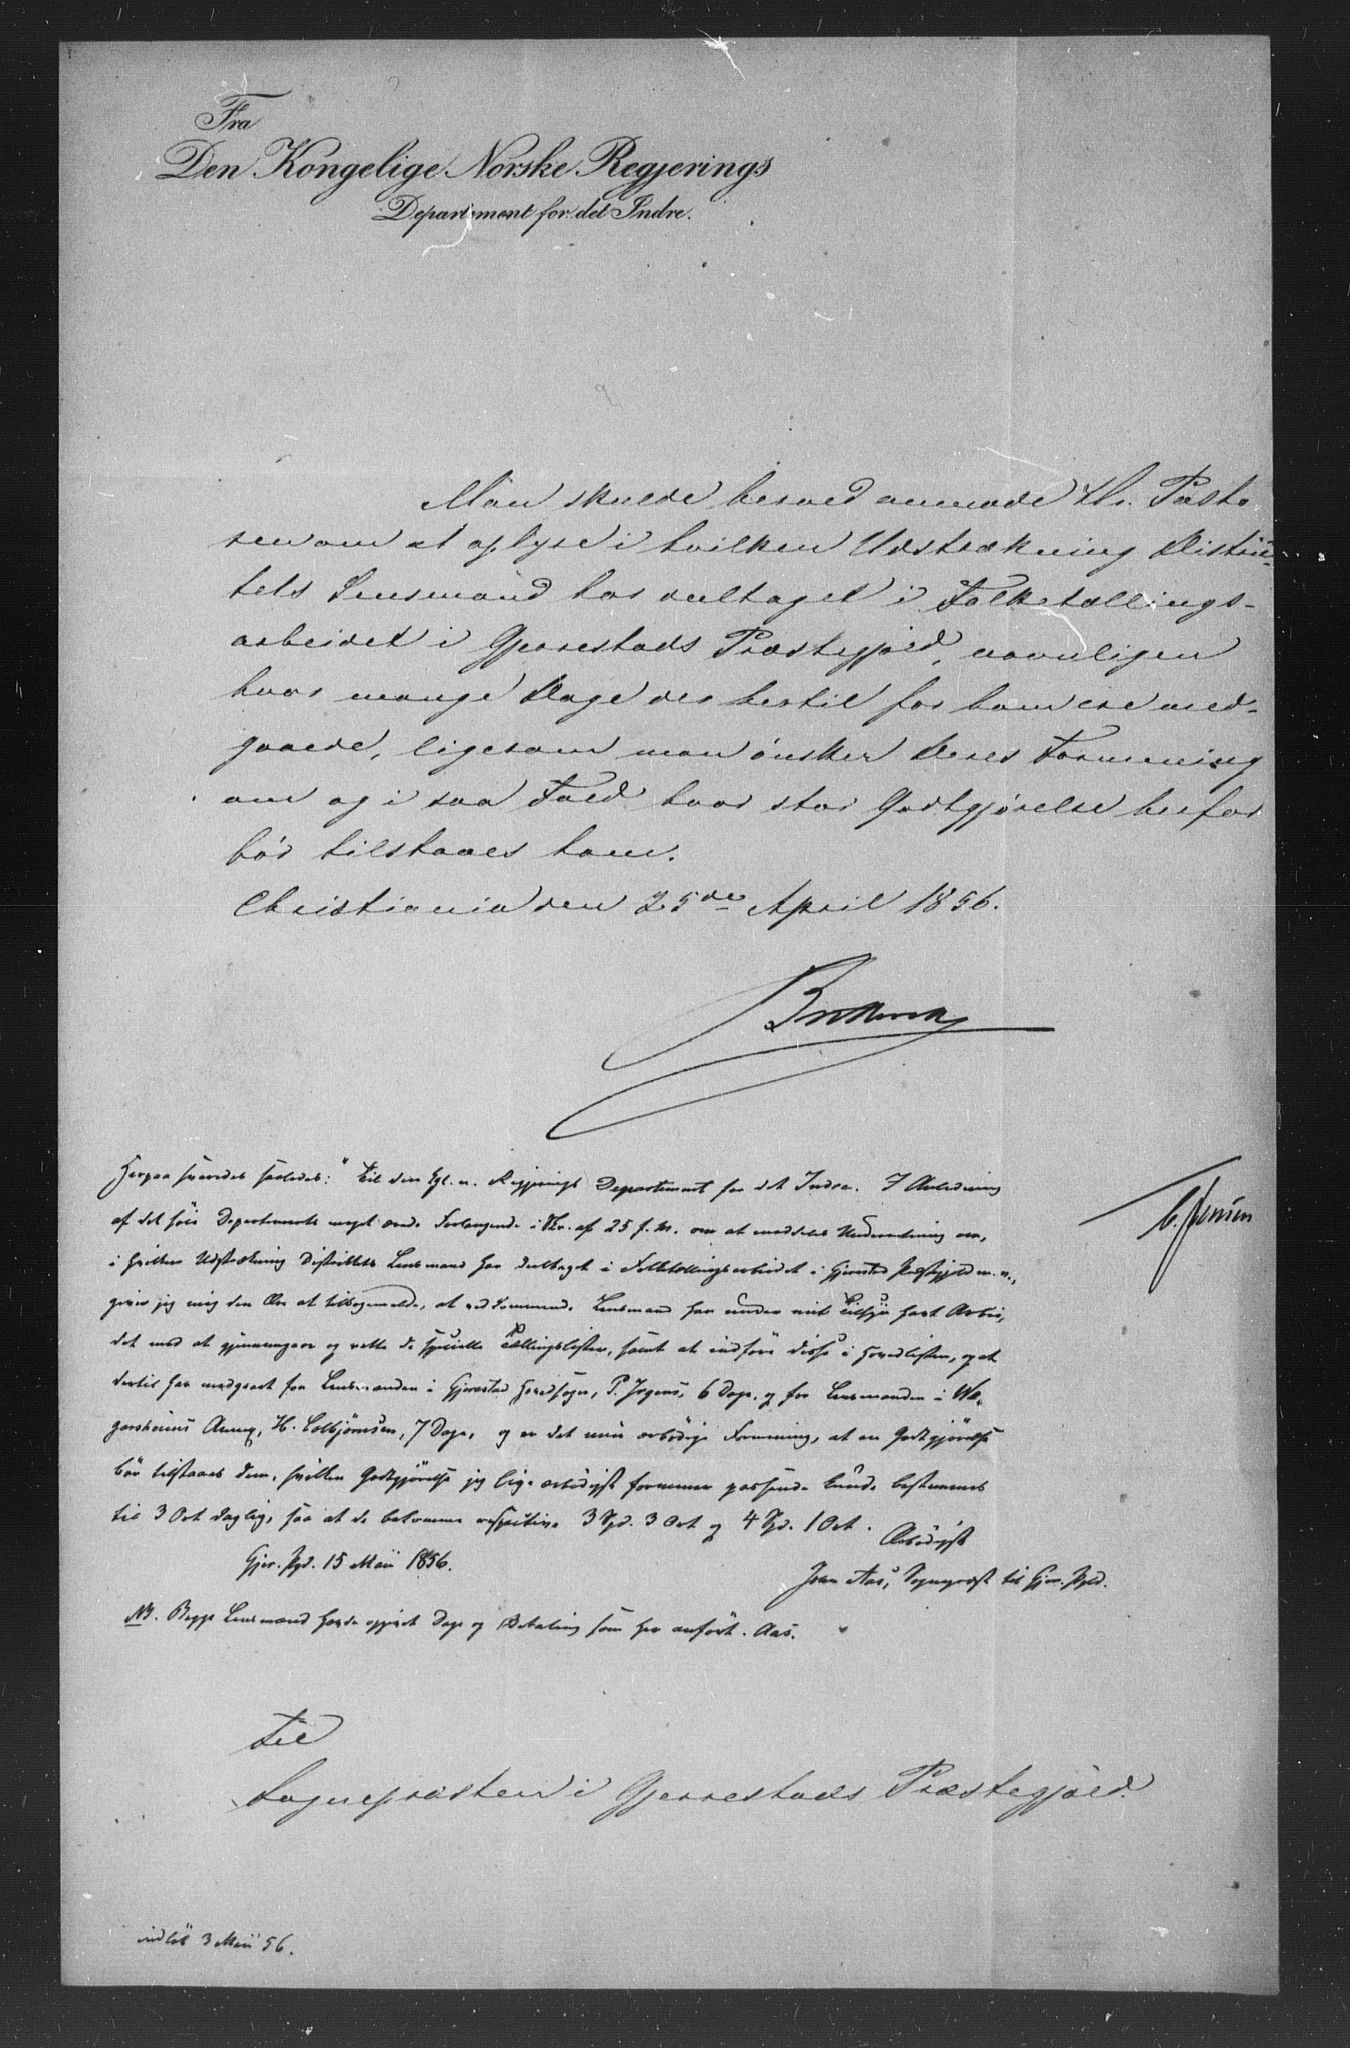 Fra
Den Kongelige Norske Regjerings
Departement for det Indre.
Man skulde herved anmode Hr. Pasto
ren om at oplyse i hvilken Udstrækning Distric-
tets Lensmand har deeltaget i Folketællings-
arbeidet i Gjerrestads Præstegjæld, navnligen
hvor mange Dage der hertil for ham ere med-
gaaede, ligesom man ønsker Deres Formening
om og i saa Fald hvor stor Godtgjørelse herfor
bør tilstaaes ham.
Christiania den 25de April 1856.
C. Jensen
Herpaa svaredes saaledes: "Til den kgl. n. Regjerings Departement for det Indre. I Anledning
af det høie Departements meget ærede Forlangende i Skr. af 25 f. M. om at meddeles Underretning om,
i hvilken Udstrækning Distriktets Lensmand har deeltaget i Folketællingsarbeidet i Gjerrestad Præstegjeld m. v.,
giver jeg mig den Ære at tilbagemelde, at vedkommende Lensmand har under mit Tilsyn havt Arbei,
det med at gjennemgaae og rette de specielle Tællingslister, samt at indføre disse i Hovedlisten, og at
dertil har medgaaet for Lensmanden i Gjerrestad Hovedsogn, P. Irgens, 6 Dage, og for Lensmanden i We,
gaarsheiens Annex, H. Colbjørnsen, 7 Dage, og er det min ærbødige Formening, at en Godtgjørelse
bør tilstaaes dem, hvilken Godtgjørelse jeg lige ærbødigst formener passende kunde bestemmes
til 3 Ort daglig, saa at de bekomme respective 3 Spd. 3 Ort og 4 Spd. 1 Ort.
Ærbødigst
Gjer. Pgd. 15 Mai 1856.
Iver Aas, Sognepræst til Gjer. Pgld.
NB. Begge Lensmænd havde opgivet Dage og Betaling som her anført. Aas.
Til
Sognepræsten i Gjerrestads Præstegjæld.
indløb 3 Mai 56.